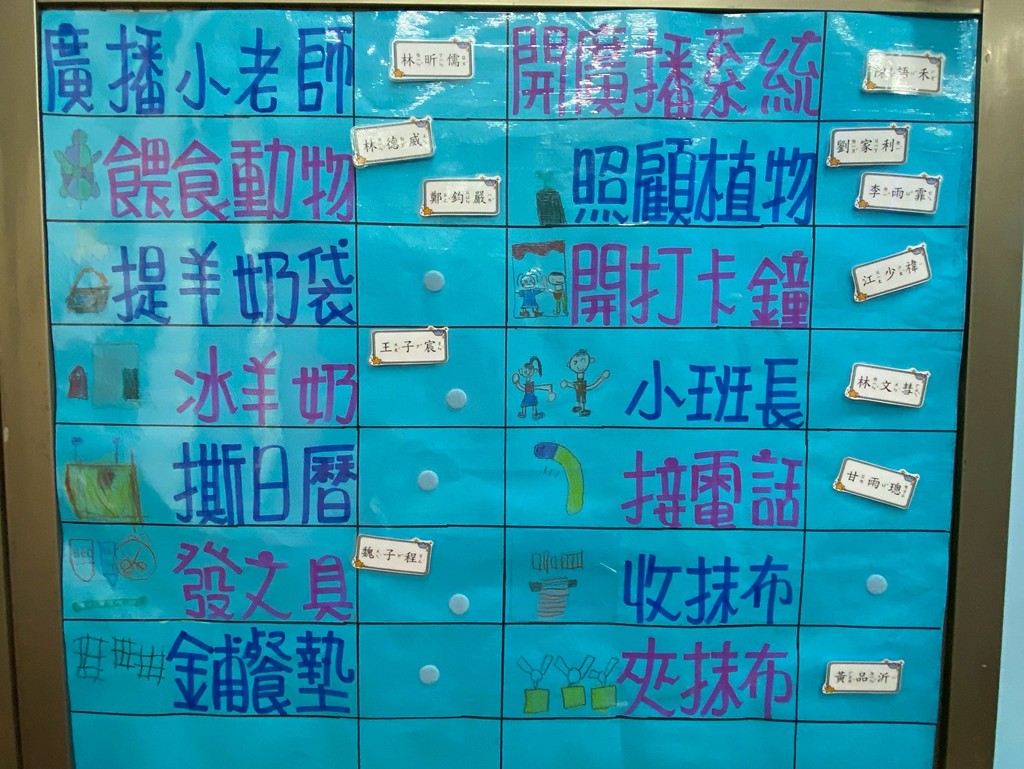 廣播小老師 林昕儒 開廣播系統 語禾
餵食動物 林德威 鄭鈞嚴 照顧植物 劉家利 李雨霏
提羊奶袋 開打卡鐘 江少褘
冰羊奶 王子宸 小班長 林文彗
撕日曆 接電話 甘雨璁
發文具 魏子程 收抹布
鋪餐墊 夾抹布 黃品沂